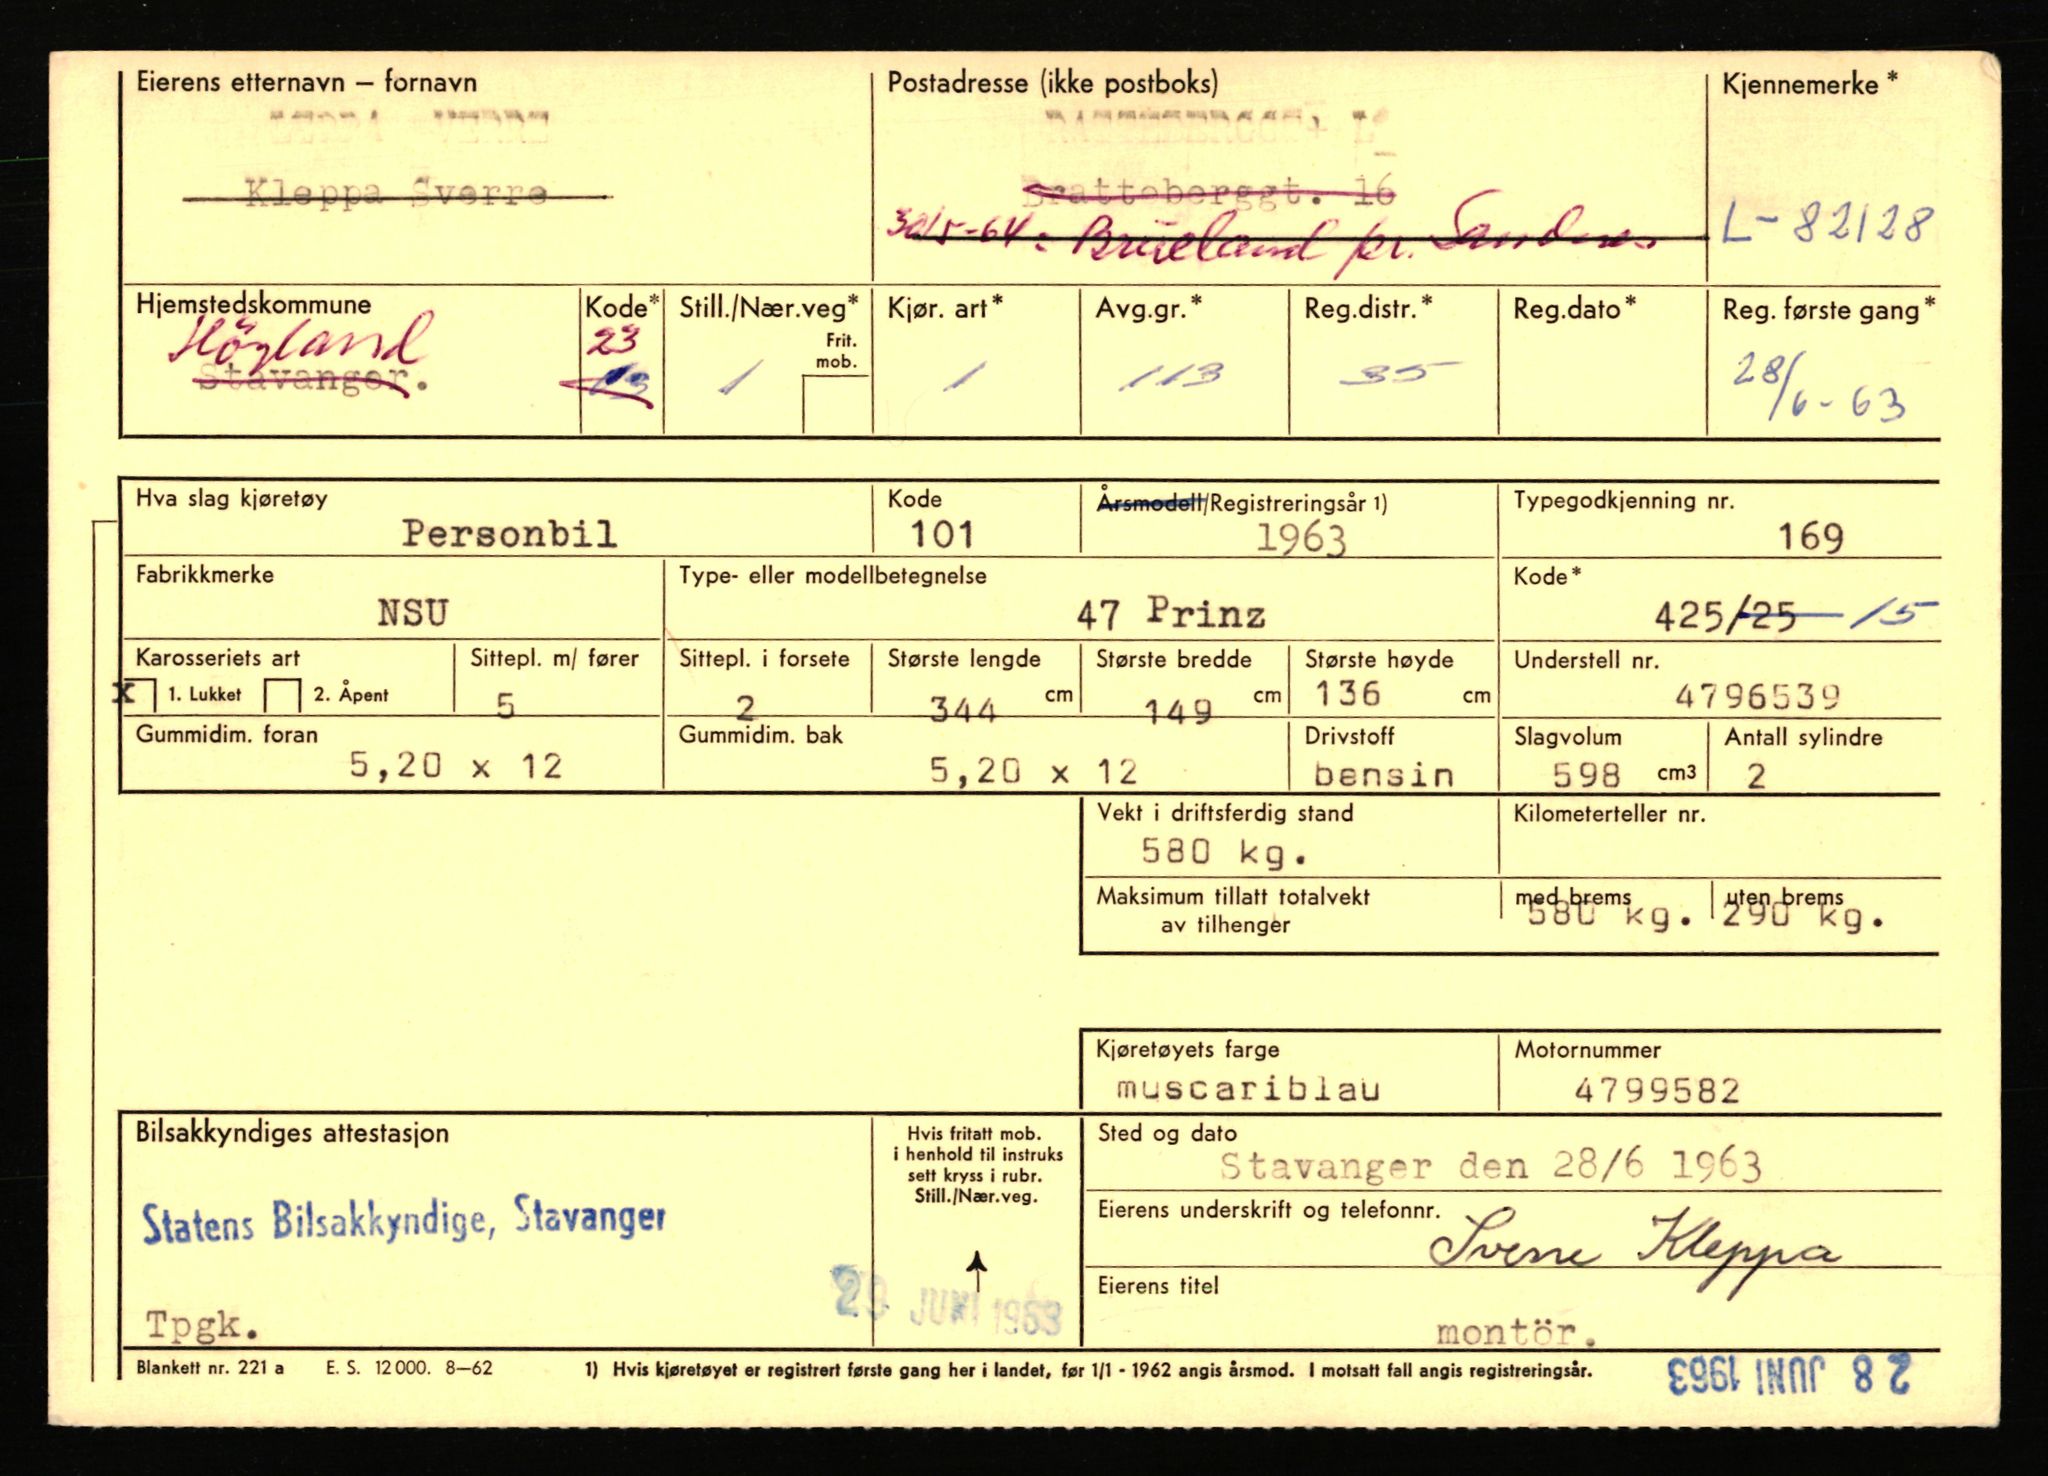 Eierens etternavn – fornavn
Postadresse (ikke postboks)
Kjennemerke*
Kleppa Sverre
Bratteberggt. 16
30/5-64: Brueland pr. Sandnes
L-82128
Hjemstedskommune
Kode*
Still./Nær.veg*
Frit. mob.
Kjør. art*
Avg.gr.*
Reg.distr.*
Reg.dato*
Reg. første gang*
Höyland
23
Stavanger.
13
1
1
113
35
28/6-63
Hva slag kjøretøy
Kode
Årsmodell/Registreringsår 1)
Typegodkjenning nr.
Personbil
101
1963
169
Fabrikkmerke
Type- eller modellbetegnelse
Kode*
NSU
47 Prinz
425/25 /15
Karosseriets art
Sittepl. m/ fører
Sittepl. i forsete
Største lengde
Største bredde
Største høyde
Understell nr.
x 1. Lukket 2. Åpent
5
2
344 cm
149 cm
136 cm
4796539
Gummidim. foran
Gummidim. bak
Drivstoff
Slagvolum
Antall sylindre
5,20 x 12
5,20 x 12
bensin
598 cm3
2
Vekt i driftsferdig stand
Kilometerteller nr.
580 kg.
Maksimum tillatt totalvekt
av tilhenger
med brems
580 kg.
uten brems
290 kg.
Kjøretøyets farge
Motornummer
muscariblau
4799582
Bilsakkyndiges attestasjon
Hvis fritatt mob.
i henhold til instruks
sett kryss i rubr.
Still./Nær.veg.
Sted og dato
Stavanger den 28/6 1963
Statens Bilsakkyndige, Stavanger
Eierens underskrift og telefonnr.
Sverre Kleppa
29 JUNI 1963
Eierens titel
Tpgk.
montör.
Blankett nr. 221 a E. S. 12 000. 8–62
1) Hvis kjøretøyet er registrert første gang her i landet, før 1/1 - 1962 angis årsmod. I motsatt fall angis registreringsår.
28 JUNI 1963